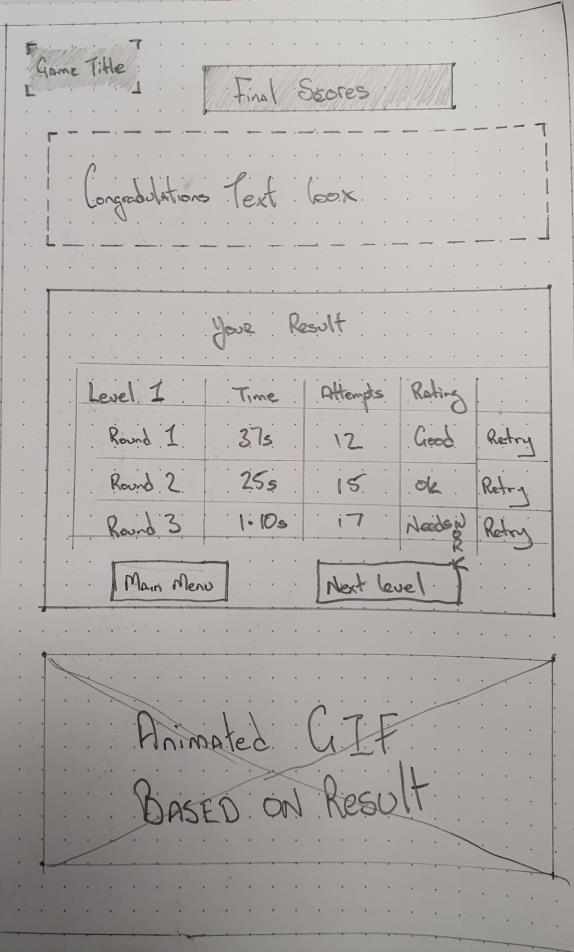 Game Title
Final Scores
Congradulations Text box
Your Result
Level 1 Time Attempts Rating
Round 1 37s 12 Good Retry
Round 2 25s 15 ok Retry
Round 3 1:10s 17 Needs WORK Retry
Main Menu Next level
Animated GIF
BASED ON Result